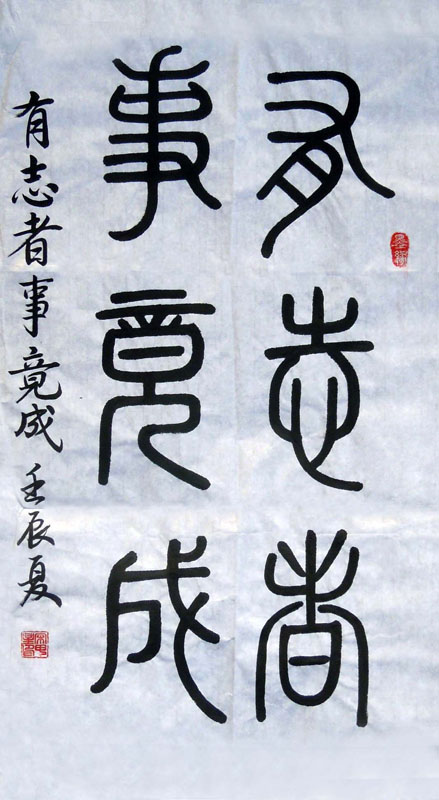 有志者
事竟成
有志者事竟成 壬辰夏